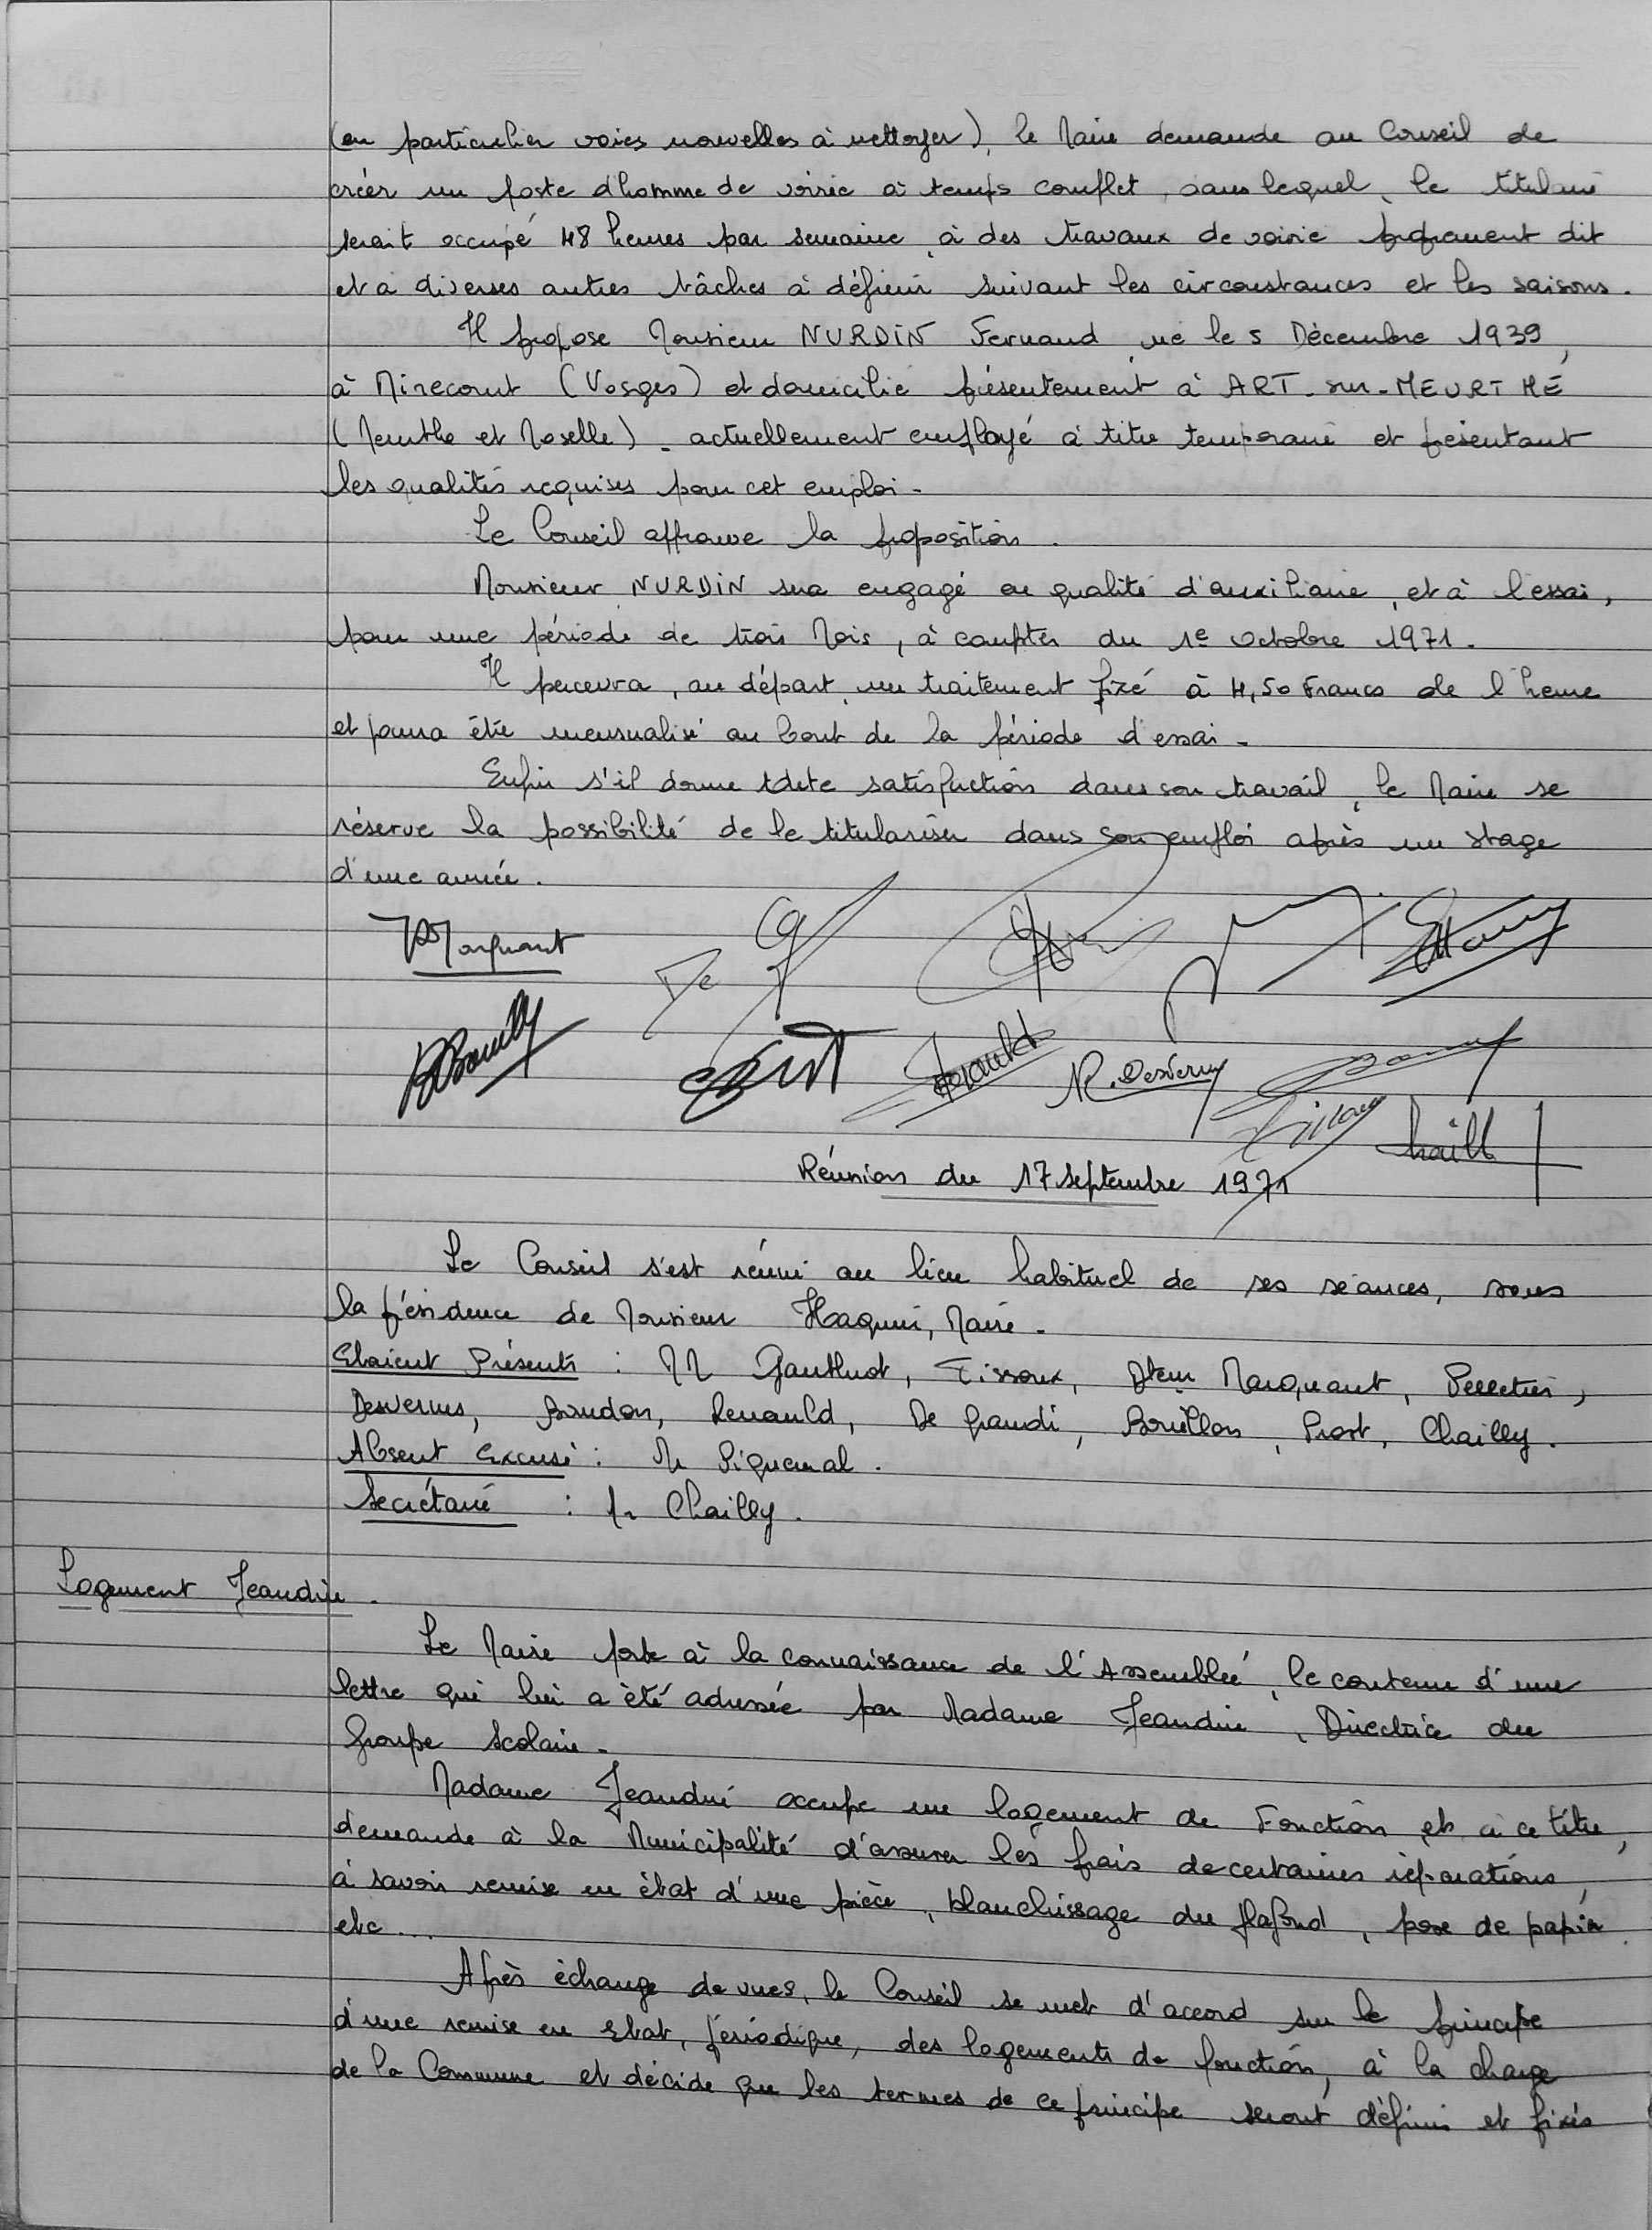 (en particulier voies nouvelles à nettoyer), le Maire demande au Conseil de
créer un poste d'homme de voirie à temps complet, dans lequel, le titulaire
serait occupé 48 heures par semaine, à des travaux de voirie proprement dit
et à diverses autres tâches à définir suivant les circonstances et les saisons.
Il propose Monsieur NURDIN Fernand né le 5 Décembre 1939,
à Mirecourt (Vosges) et domicilié présentement à ART-sur-MEURTHE
(Meurthe et Moselle) - actuellement employé à titre temporaire et présentant
les qualités requises pour cet emploi -
Le Conseil approuve la proposition.
Monsieur NURDIN sera engagé en qualité d'auxiliaire, et à l'essai,
pour une période de trois Mois, à compter du 1e octobre 1971.
Il percevra, au départ, un traitement fixé à 4,50 Francs de l'heure
et pourra être mensualisé au bout de la période d'essai -
Enfin s'il donne toute satisfaction dans son travail, le Maire se
réserve la possibilité de le titulariser dans son emploi après un stage
d'une année.
Marquant
De
Bouilly
Renauld
R. Desvernes
Chailly
Réunion du 17 septembre 1971
Le Conseil s'est réuni au lieu habituel de ses séances, sous
la présidence de Monsieur Haquin, Maire -
Etaient Présents : MM Gauthrot, Tissoux, Marquant, Pelletier,
Desvernes, Boudon, Renauld, De Grandi, Brouillon, Prost, Chailly.
Absent Excusé : Mr Piquemal.
Secrétaire : Mr Chailly.
Logement Jeandin.
Le Maire porte à la connaissance de l'Assemblée, le contenu d'une
lettre qui lui a été adressée par Madame Jeandin, Directrice du
Groupe Scolaire -
Madame Jeandin occupe un logement de Fonction et à ce titre,
demande à la Municipalité d'assurer les frais de certaines réparations,
à savoir remise en état d'une pièce, blanchissage du plafond, pose de papier
etc...
Après échange de vues, le Conseil se met d'accord sur le principe
d'une remise en Etat, périodique, des logements de fonction, à la charge
de la Commune et décide que les termes de ce principe seront définis et fixés